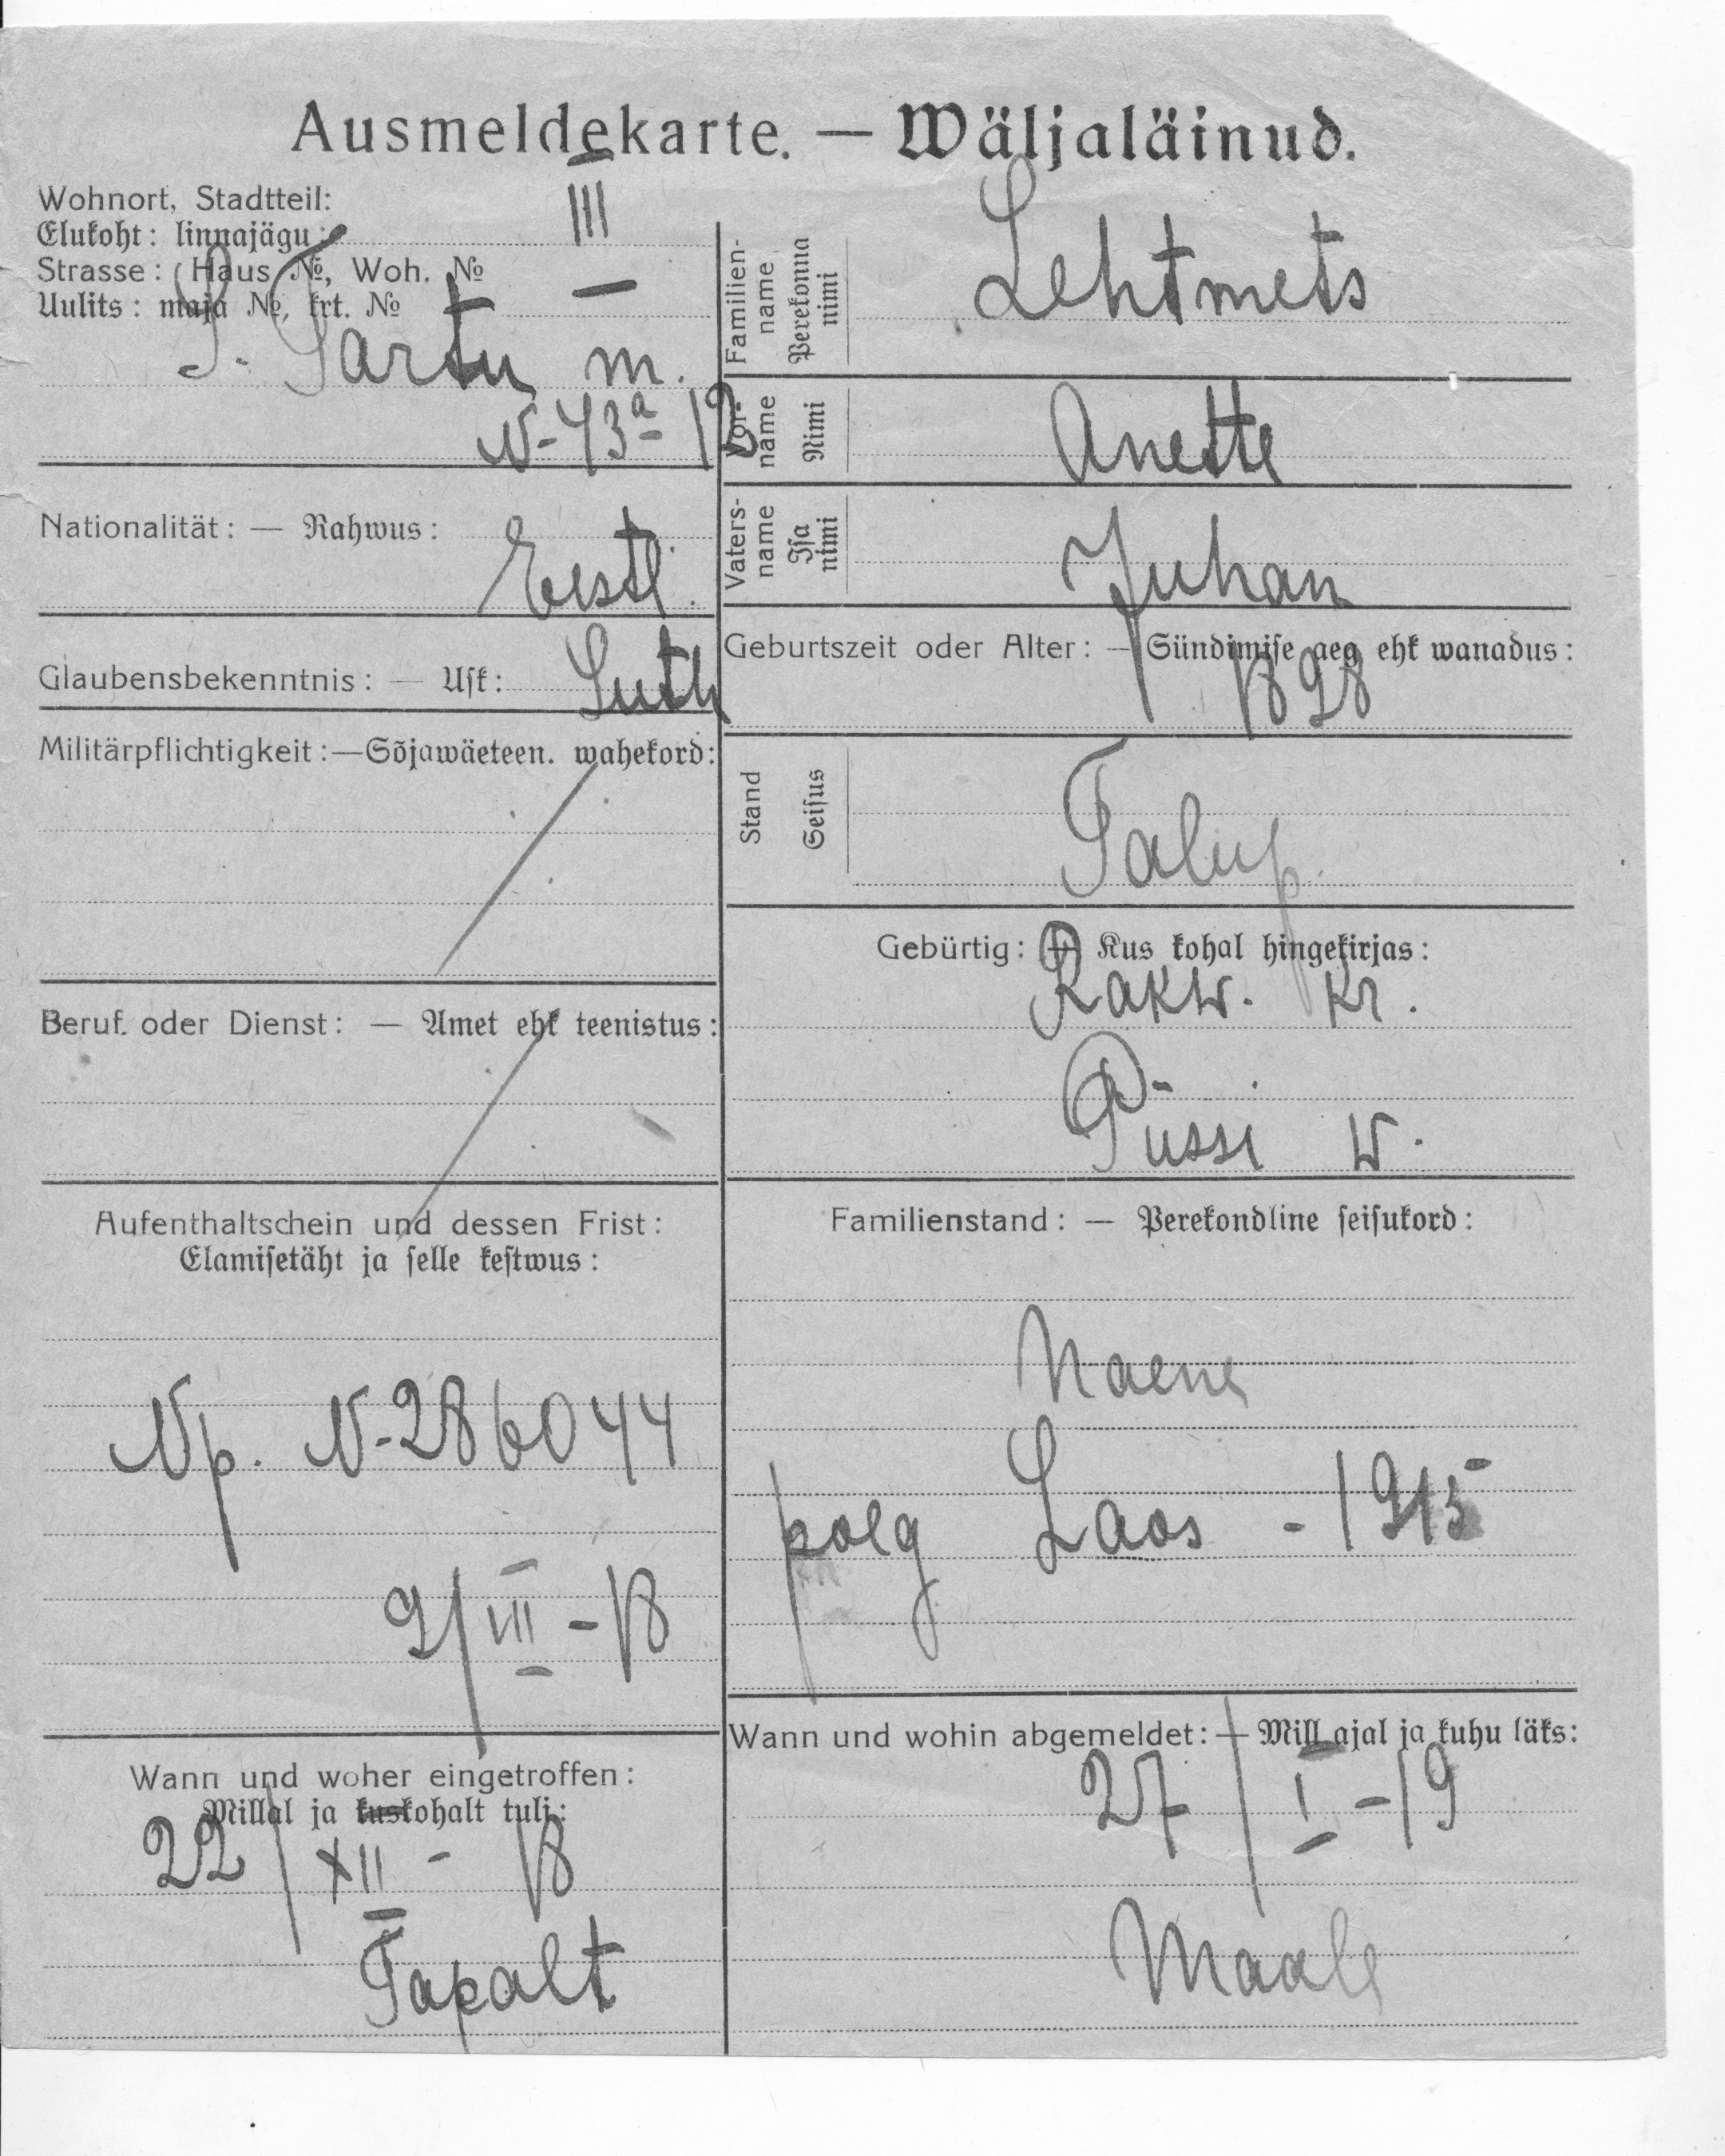 Ausmeldekarte. — Wäljaläinud.
Wohnort, Stadtteil:
Elukoht: linnajägu: III
Strasse: Haus №, Woh. №
Uulits: maja №, krt. №
P. Tartu m.
N-43a 12
Nationalität: — Rahwus: Eestl.
Glaubensbekenntnis: — Usk: Luth
Militärpflichtigkeit:—Sõjawäeteen. wahekord:
Beruf. oder Dienst: — Amet ehk teenistus:
Aufenthaltschein und dessen Frist:
Elamisetäht ja selle kestwus:
Np. N-286044
9/III-18
Wann und woher eingetroffen:
Millal ja kuskohalt tuli:
22/XII-18
Tapalt
Familien-
name
Perekonna
nimi
Lehtmets
Vor-
name
Nimi
Anette
Vaters-
name
Isa
nimi
Juhan
Geburtszeit oder Alter: — Sündimise aeg ehk wanadus:
1898
Stand
Seisus
Talup.
Gebürtig: — Kus kohal hingekirjas:
Rakw. kr.
Püssi w.
Familienstand: — Perekondline seisukord:
Naene
poeg Laos - 1915
Wann und wohin abgemeldet: — Mill ajal ja kuhu läks:
27/I-19
Maale